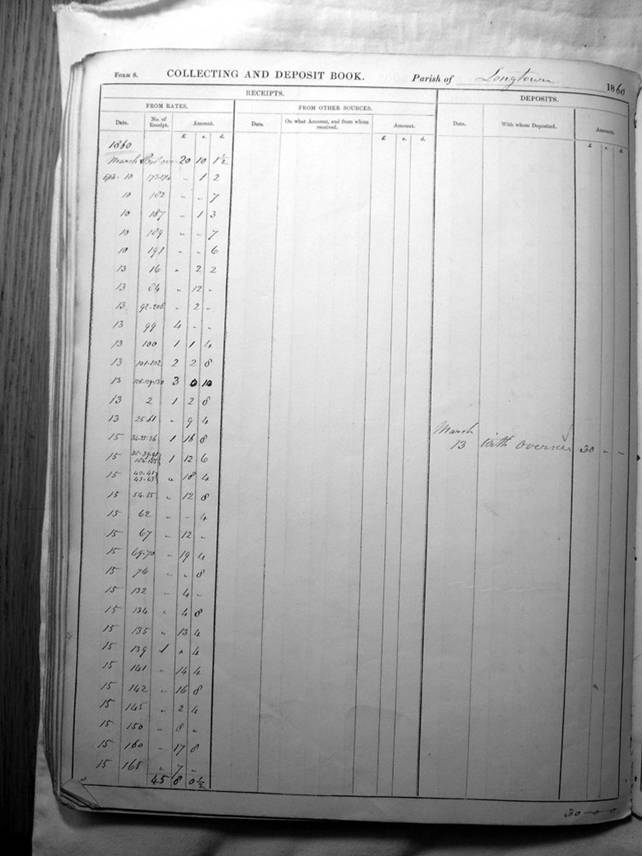 FORM 8. COLLECTING AND DEPOSIT BOOK. Parish of Longtown 1860
RECEIPTS. DEPOSITS.
FROM RATES. FROM OTHER SOURCES.
Date. No. of Receipt. Amount. Date. On what Account, and from whom received. Amount. Date. With whom Deposited. Amount.
£ s. d. £ s. d. £ s. d.
1860
March 20 10 1½
10 1 2
10 182 - - 7
10 187 - 1 3
10 189 - - 7
10 198 - - 6
13 16 - 2 2
13 84 - 12 -
13 92-208 - 2 -
13 99 4 - -
13 100 1 1 4
13 101-102 2 2 8
13 3 0 10
13 2 1 2 8
13 25 - 9 4
15 1 16 8
March
13 With overseer 30 - -
15 1 12 6
15 " 18 4
15 54-55 " 12 8
15 62 - - 4
15 67 - 12 -
15 69-70 - 19 4
15 76 - " 8
15 132 - 4 -
15 134 " 4 8
15 135 " 13 4
15 139 1 " 4
15 141 - 14 4
15 142 - 16 8
15 145 " 2 4
15 150 - 8 -
15 160 - 17 8
15 165 " 7 -
45 8 0½
30 - 0 - 0